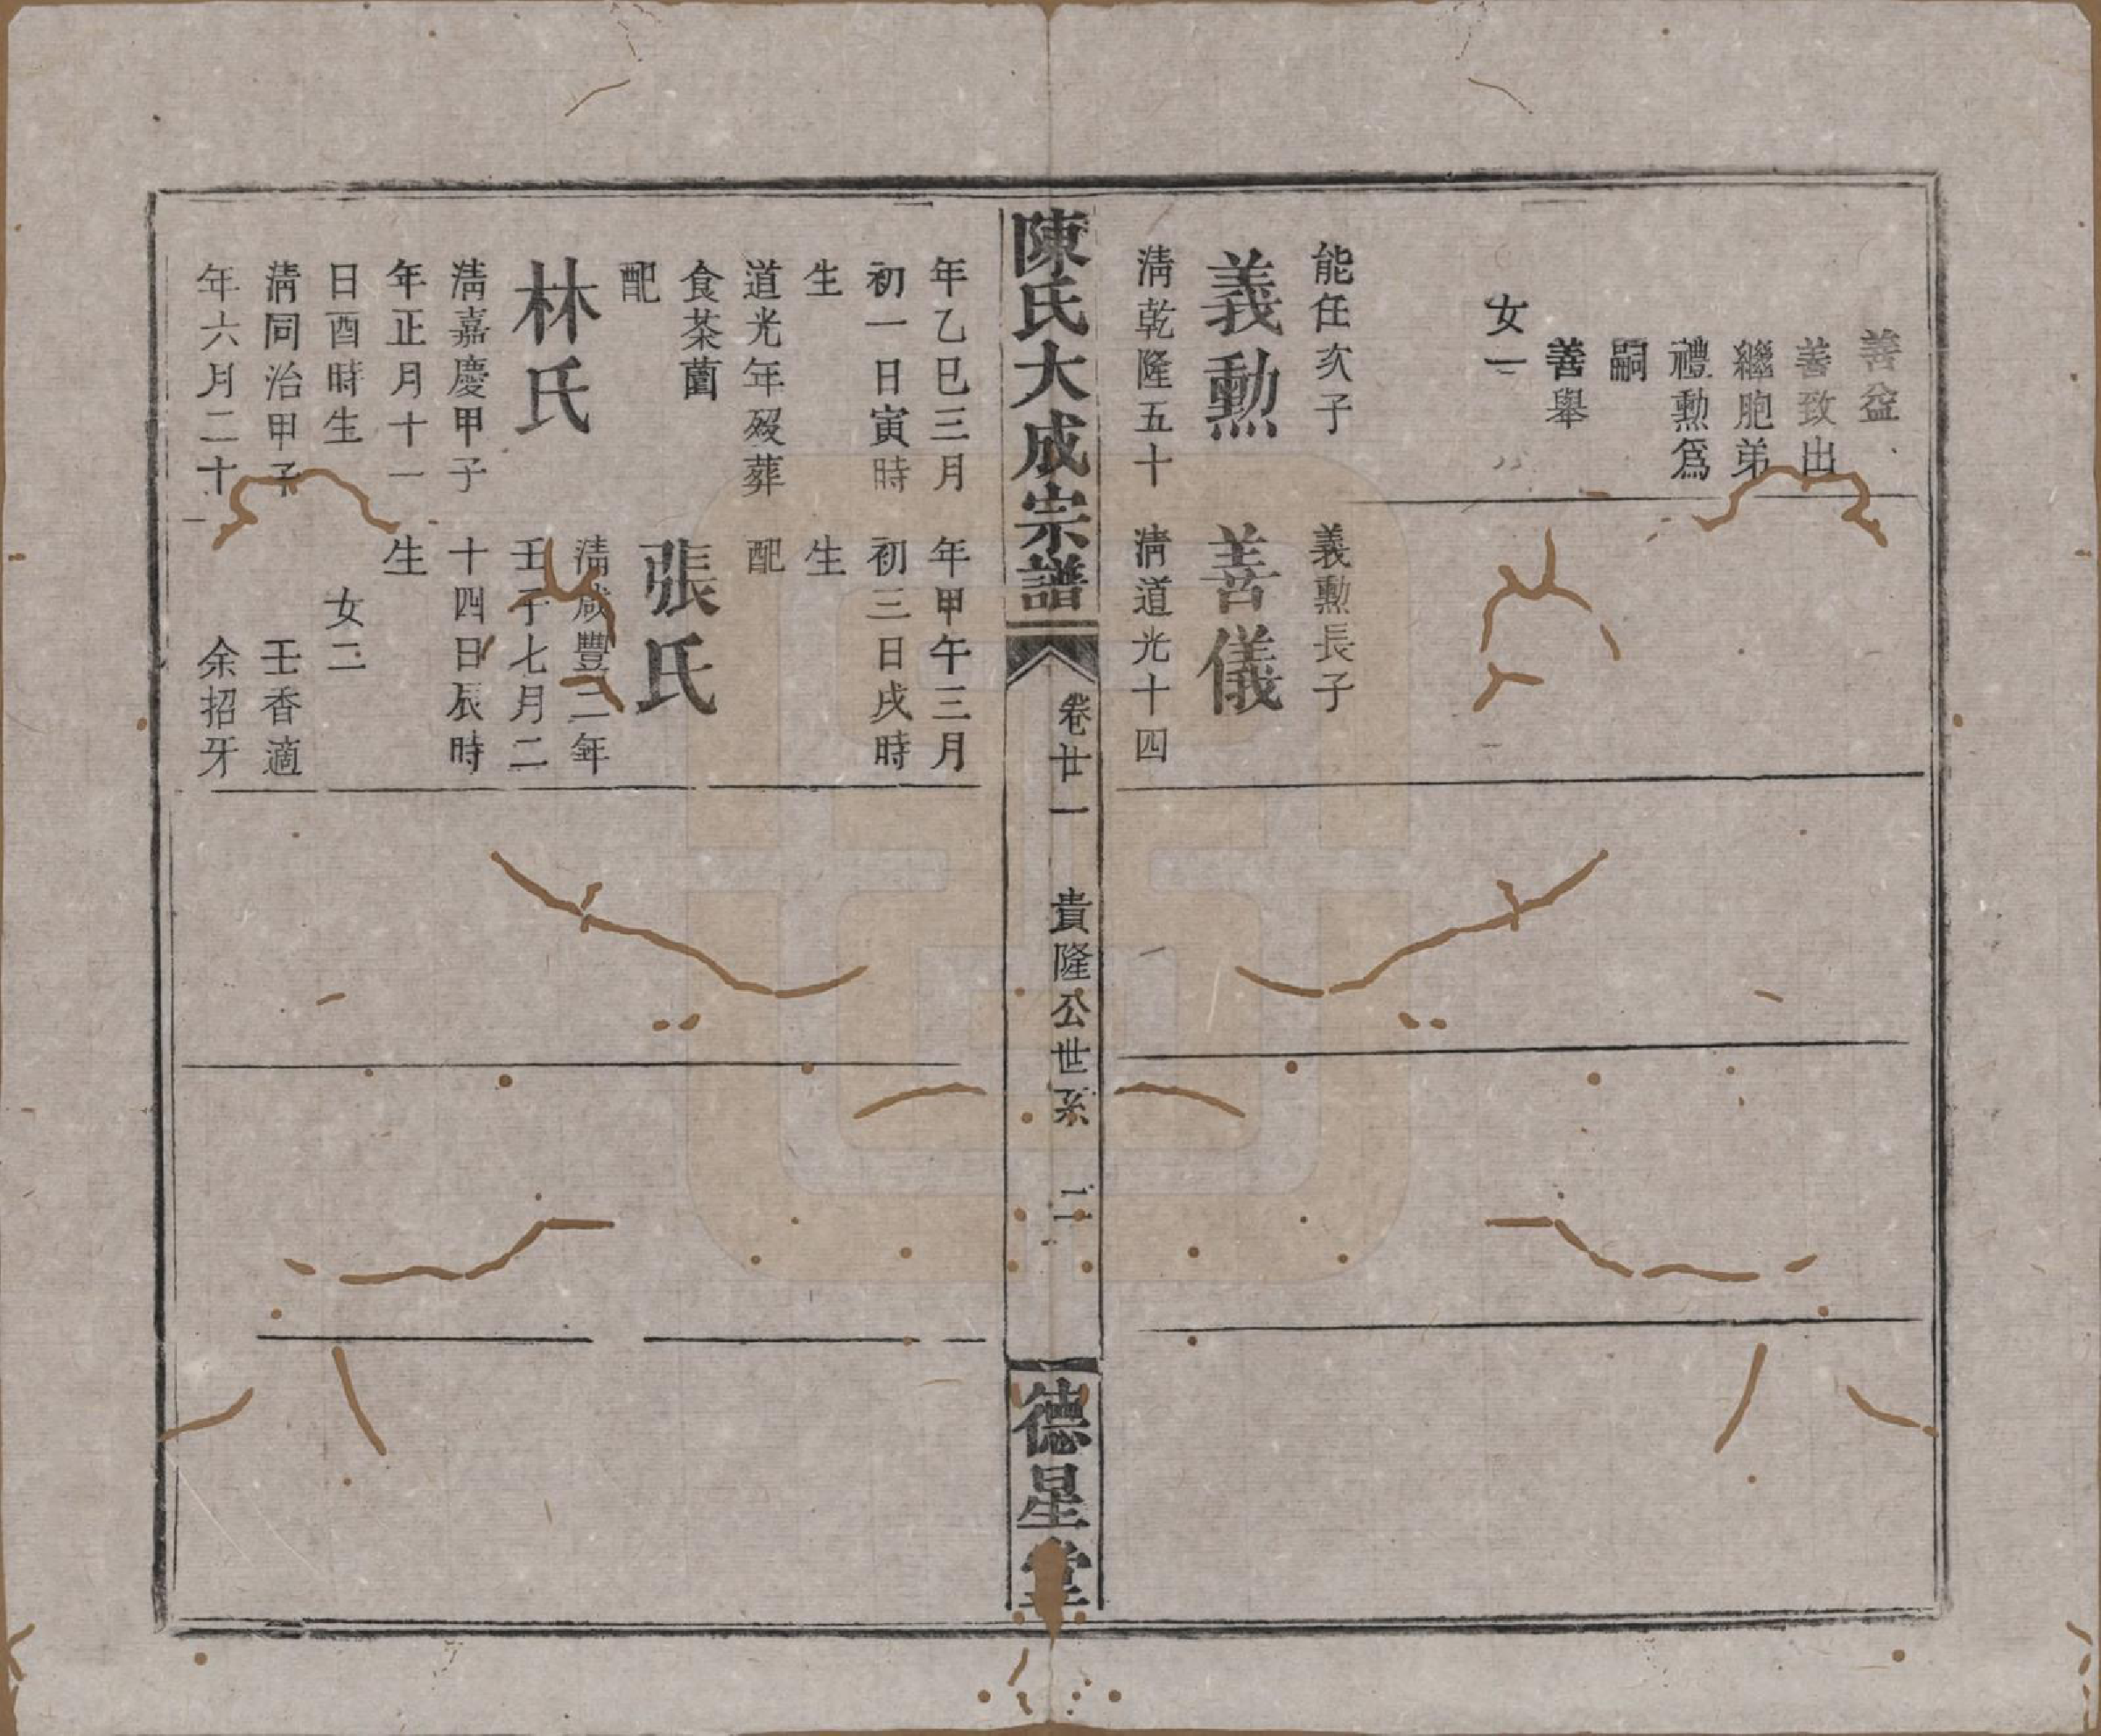 善益
善致出
繼胞弟
禮勲爲
嗣
善舉
女一
能任次子
義勲
淸乾隆五十
義勲長子
善儀
淸道光十四
陳氏大成宗譜
卷廿一
貴隆公世系
二
德星堂
年乙巳三月
初一日寅時
生
道光年歿葬
食茶薗
配
林氏
淸嘉慶甲子
年正月十一
日酉時生
淸同治甲子
年六月二十
年甲午三月
初三日戌時
生
配
張氏
淸咸豐二年
壬子七月二
十四日辰時
生
女二
壬香適
余招牙